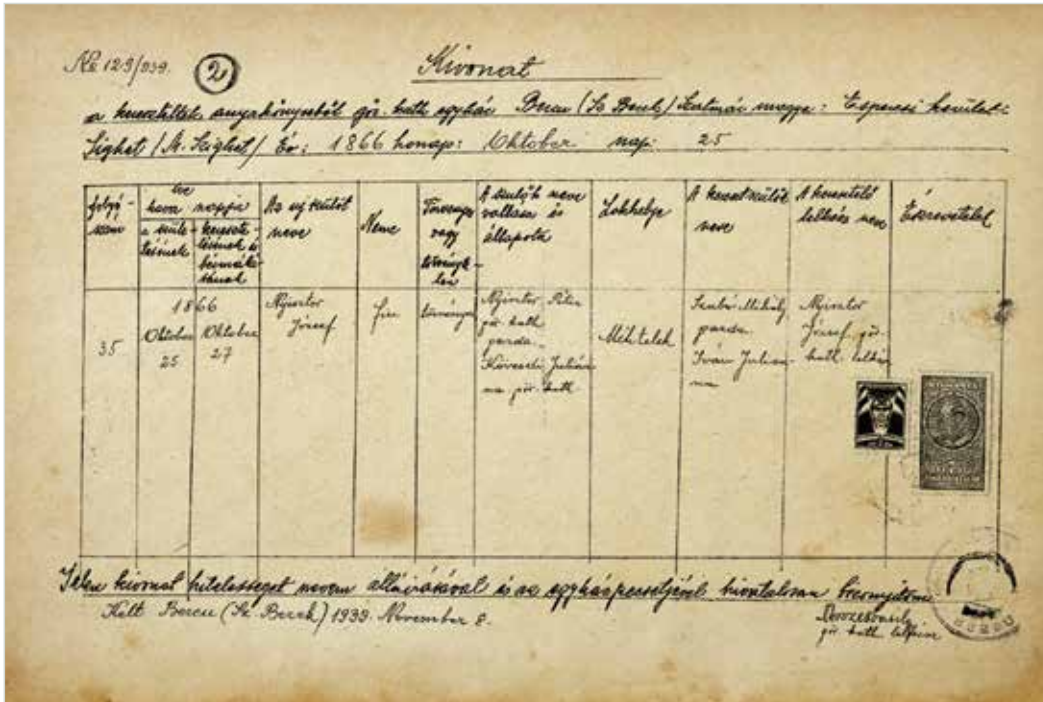 No 123/939. 2 Kivonat
a kereszteltek anyakönyvéből gör. kath egyház Bercu (Sz Berek) Szatmár megye: Esperesi kerület:
Sighet / M. Szighet / Év: 1866 honap: Oktober nap: 25
folyó-
szám
éve
hava napja
a szüle-
tésének
keresztelé-
lésének és
bérmálá-
sának
Az uj szülöt
neve
Neme
Törvényes
vagy
törvényte-
len
A szülők neve
vallása és
állapota
Lakhelye
A keresztszülők
neve
A keresztelő
lelkész neve
Észrevételek
35
1866
Oktober
25
Oktober
27
Nyisztor
József
fiu
törvényes
Nyisztor Péter
gör. kath
gazda.
Julián
na gör. kath
Méhtelek
Szabó Mihály
gazda.
Iván Julian
na
Nyisztor
József gör.
kath. lelkész
Jelen kivonat hitelességet nevem alláirásával és az egyház pecsétjével hivatalosan bizonyitom
Kelt Bercu (Sz. Berek) 1939. November 8.
gör. kath lelkész